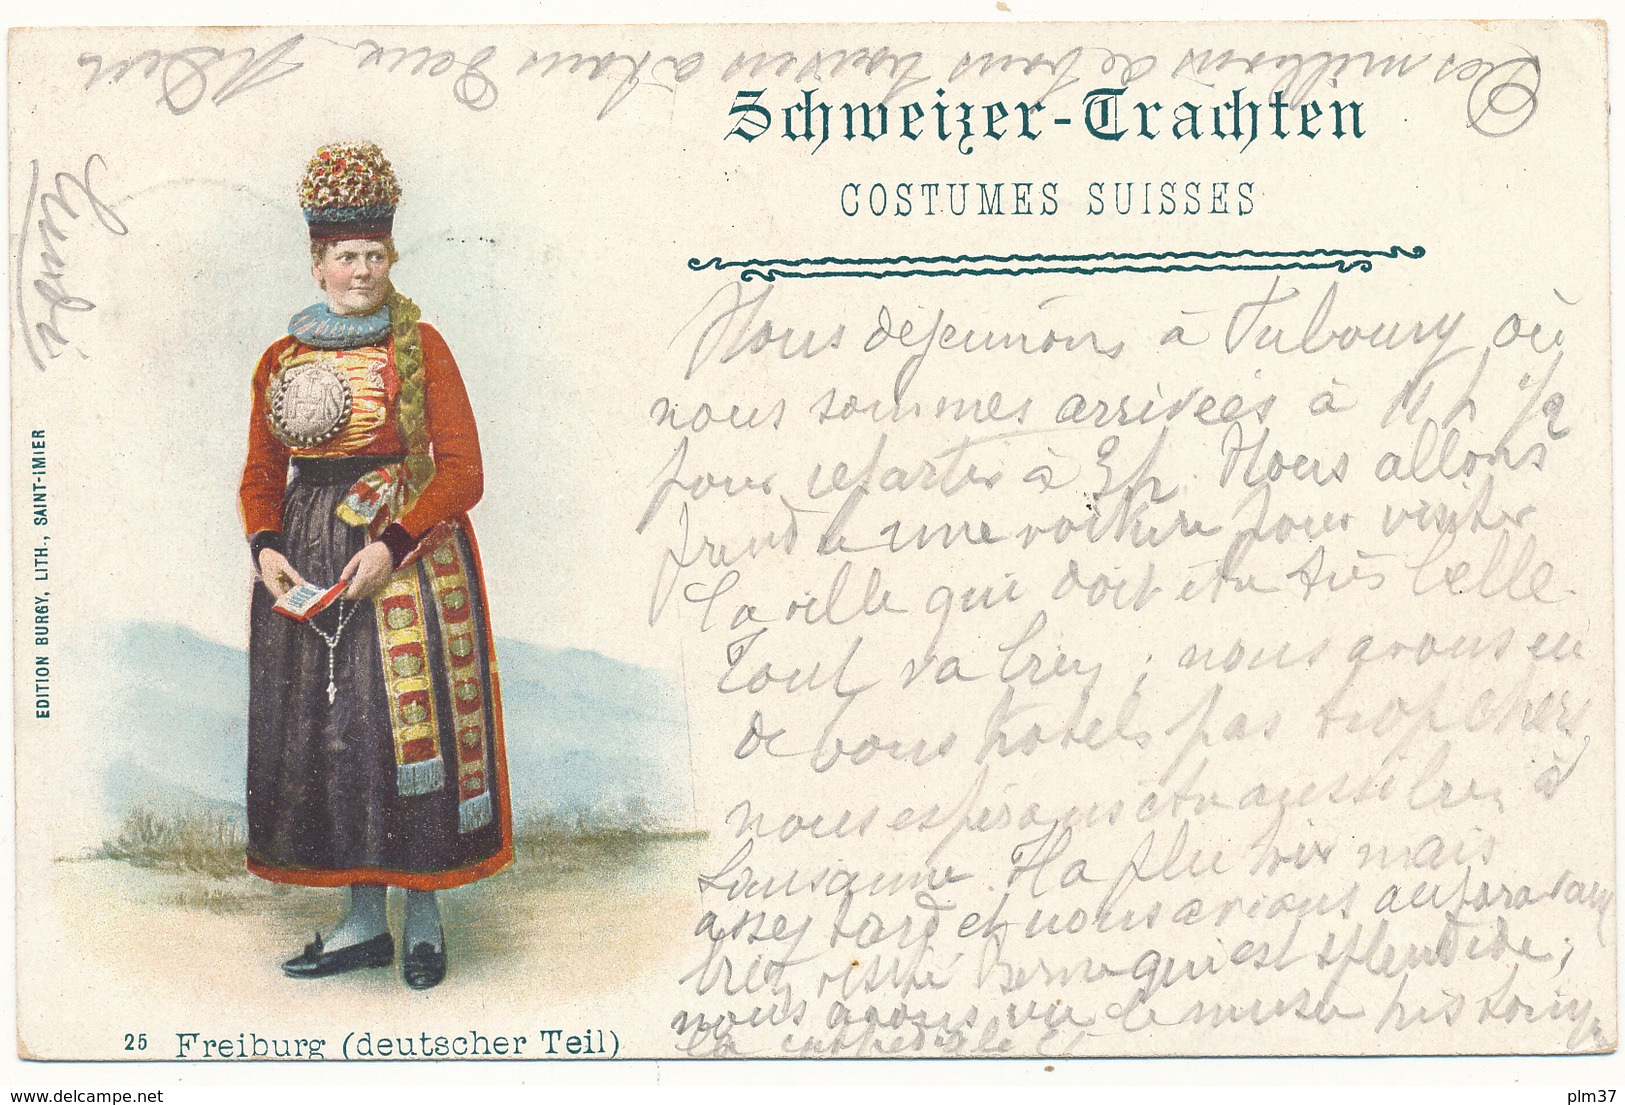 Des millions de bons baisers à tous deux
lundi
Schweizer-Trachten
COSTUMES SUISSES
Nous déjeunons à Fribourg où
nous sommes arrivées à 11 h 1/2
pour repartir à 3 h. Nous allons
prendre une voiture pour visiter
la ville qui doit être très belle.
Tout va bien ; nous avons eu
de bons hotels pas trop chers,
nous espérons être aussi bien à
Lausanne. Il a plu hier mais
assez tard et nous avions auparavant
bien visité Berne qui est splendide ;
nous avons vu le musée historique
la cathédrale
EDITION BURGY, LITH., SAINT-IMIER
25 Freiburg (deutscher Teil)
www.delcampe.net
plm37